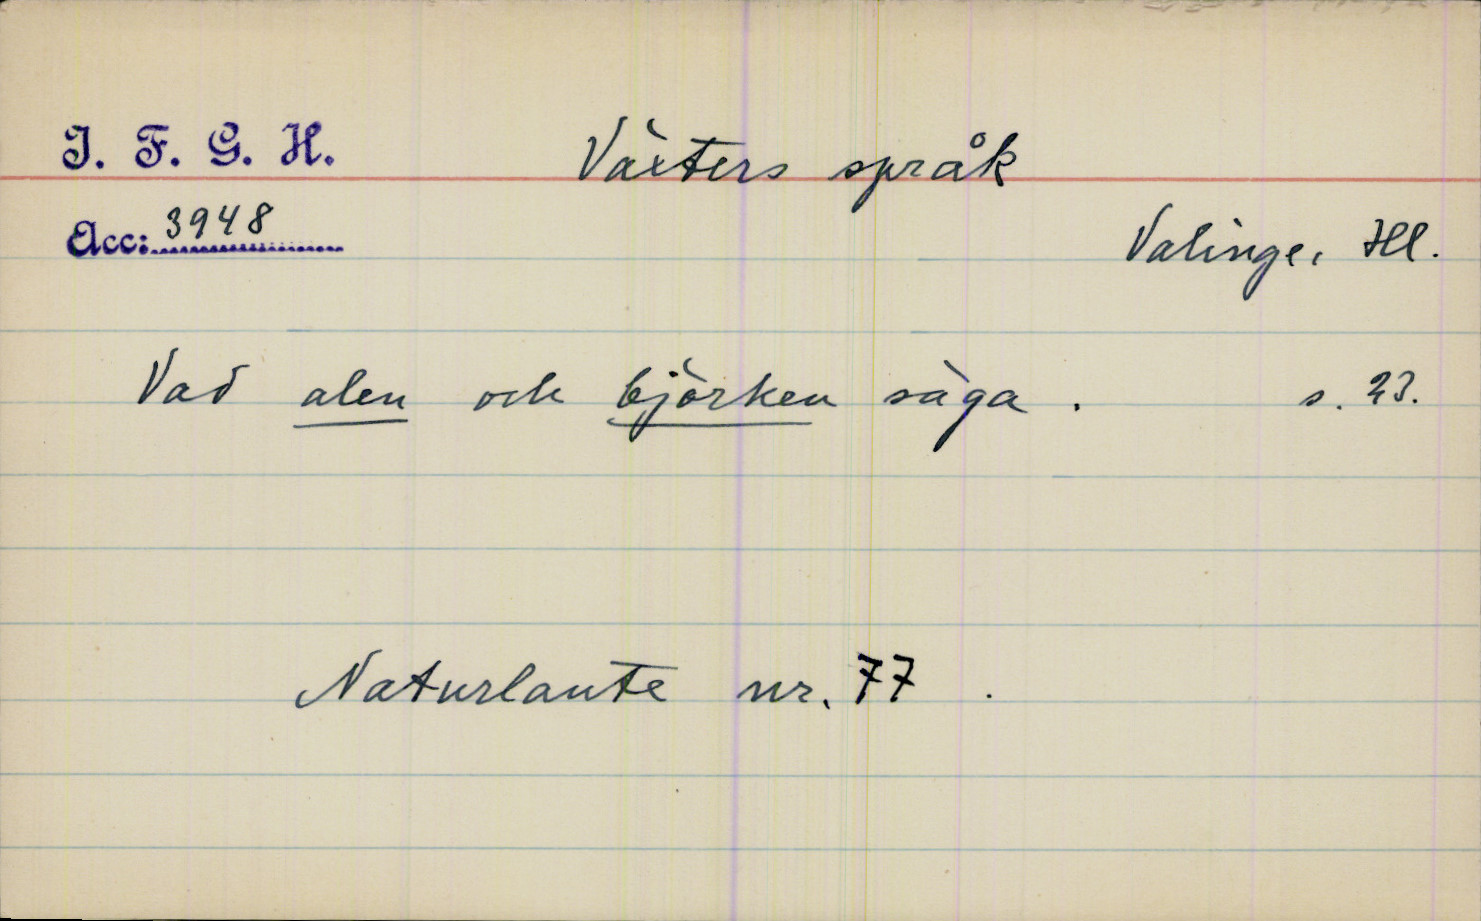 I. F. G. H.
Växters språk
Acc: 3948
Valinge, Hl.
Vad alen och björken säga. s. 23.
Naturlaute nr. 77.